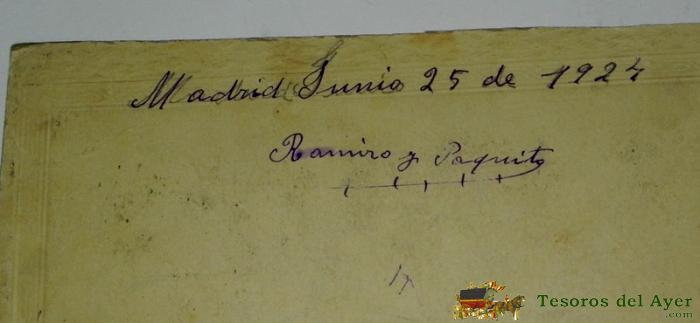 Madrid Junio 25 de 1924
Ramiro y Paquito
Tesoros del Ayer
.com